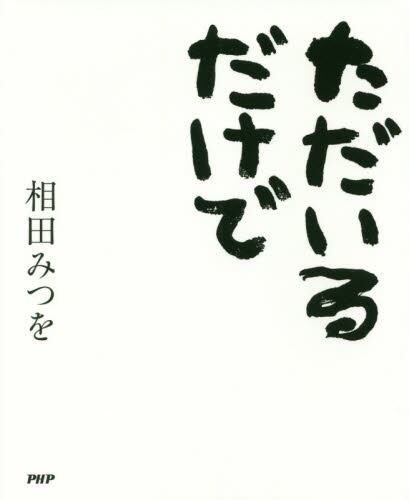 ただいる
だけで
相田みつを
PHP